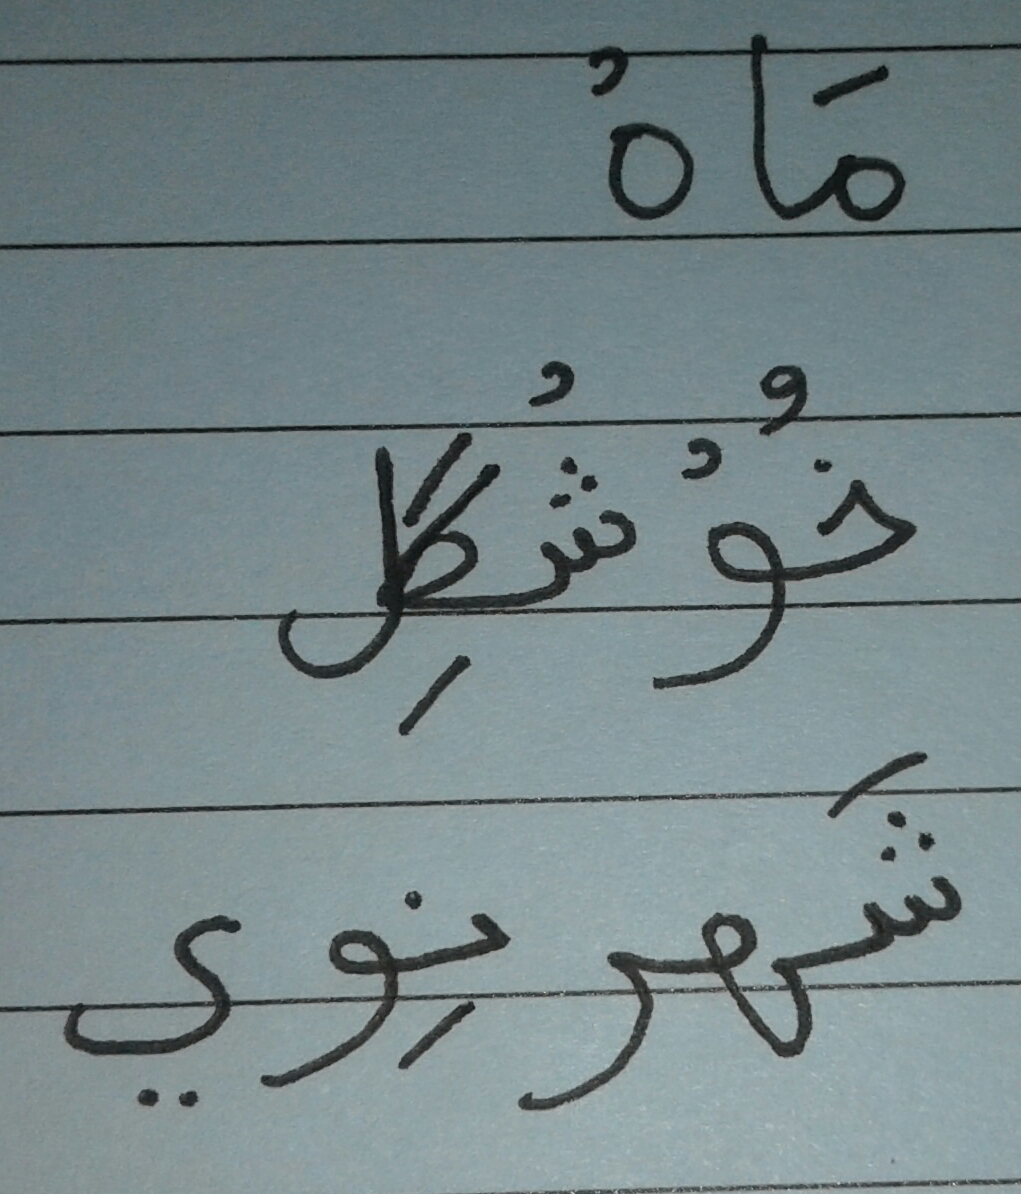 مَاهْ
خُوْشْگِل
شَهر نِوي